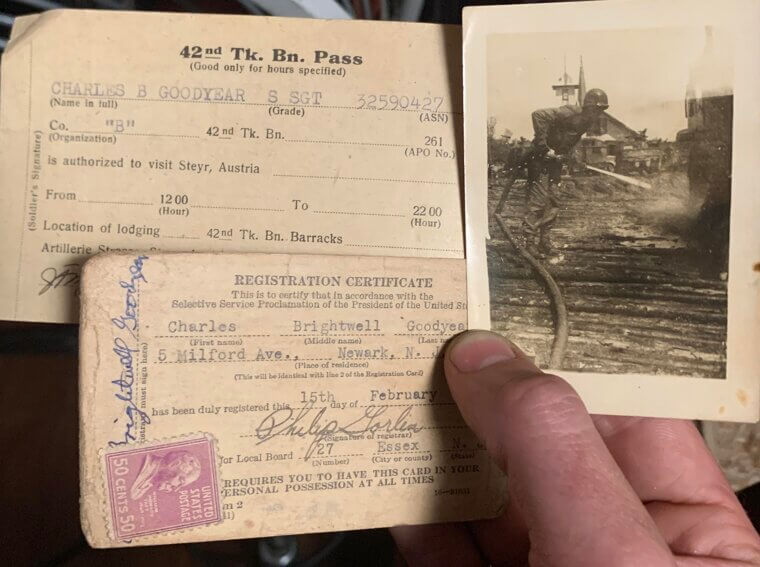 42nd Tk. Bn. Pass
(Good only for hours specified)
CHARLES B GOODYEAR S SGT 32590427
(Name in full) (Grade) (ASN)
Co. "B" 42nd Tk. Bn. 261
(Organization) (APO No.)
is authorized to visit Steyr, Austria
From 12 00 To 22 00
(Hour) (Hour)
Location of lodging 42nd Tk. Bn. Barracks
Artillerie
(Soldier's Signature)
REGISTRATION CERTIFICATE
This is to certify that in accordance with the
Selective Service Proclamation of the President of the United
Charles Brightwell Goodyea
(First name) (Middle name) (Last
5 Milford Ave., Newark, N. J
(Place of residence)
(This will be identical with line 2 of the Registration Card)
has been duly registered this 15th day of February
Philip
(Signature of registrar)
for Local Board 27 Essex N.
(Number) (City or county) (State)
REQUIRES YOU TO HAVE THIS CARD IN YOUR
ERSONAL POSSESSION AT ALL TIMES
m 2
must sign here)
Brightwell Goodyear
UNITED
STATES
POSTAGE
50 CENTS 50